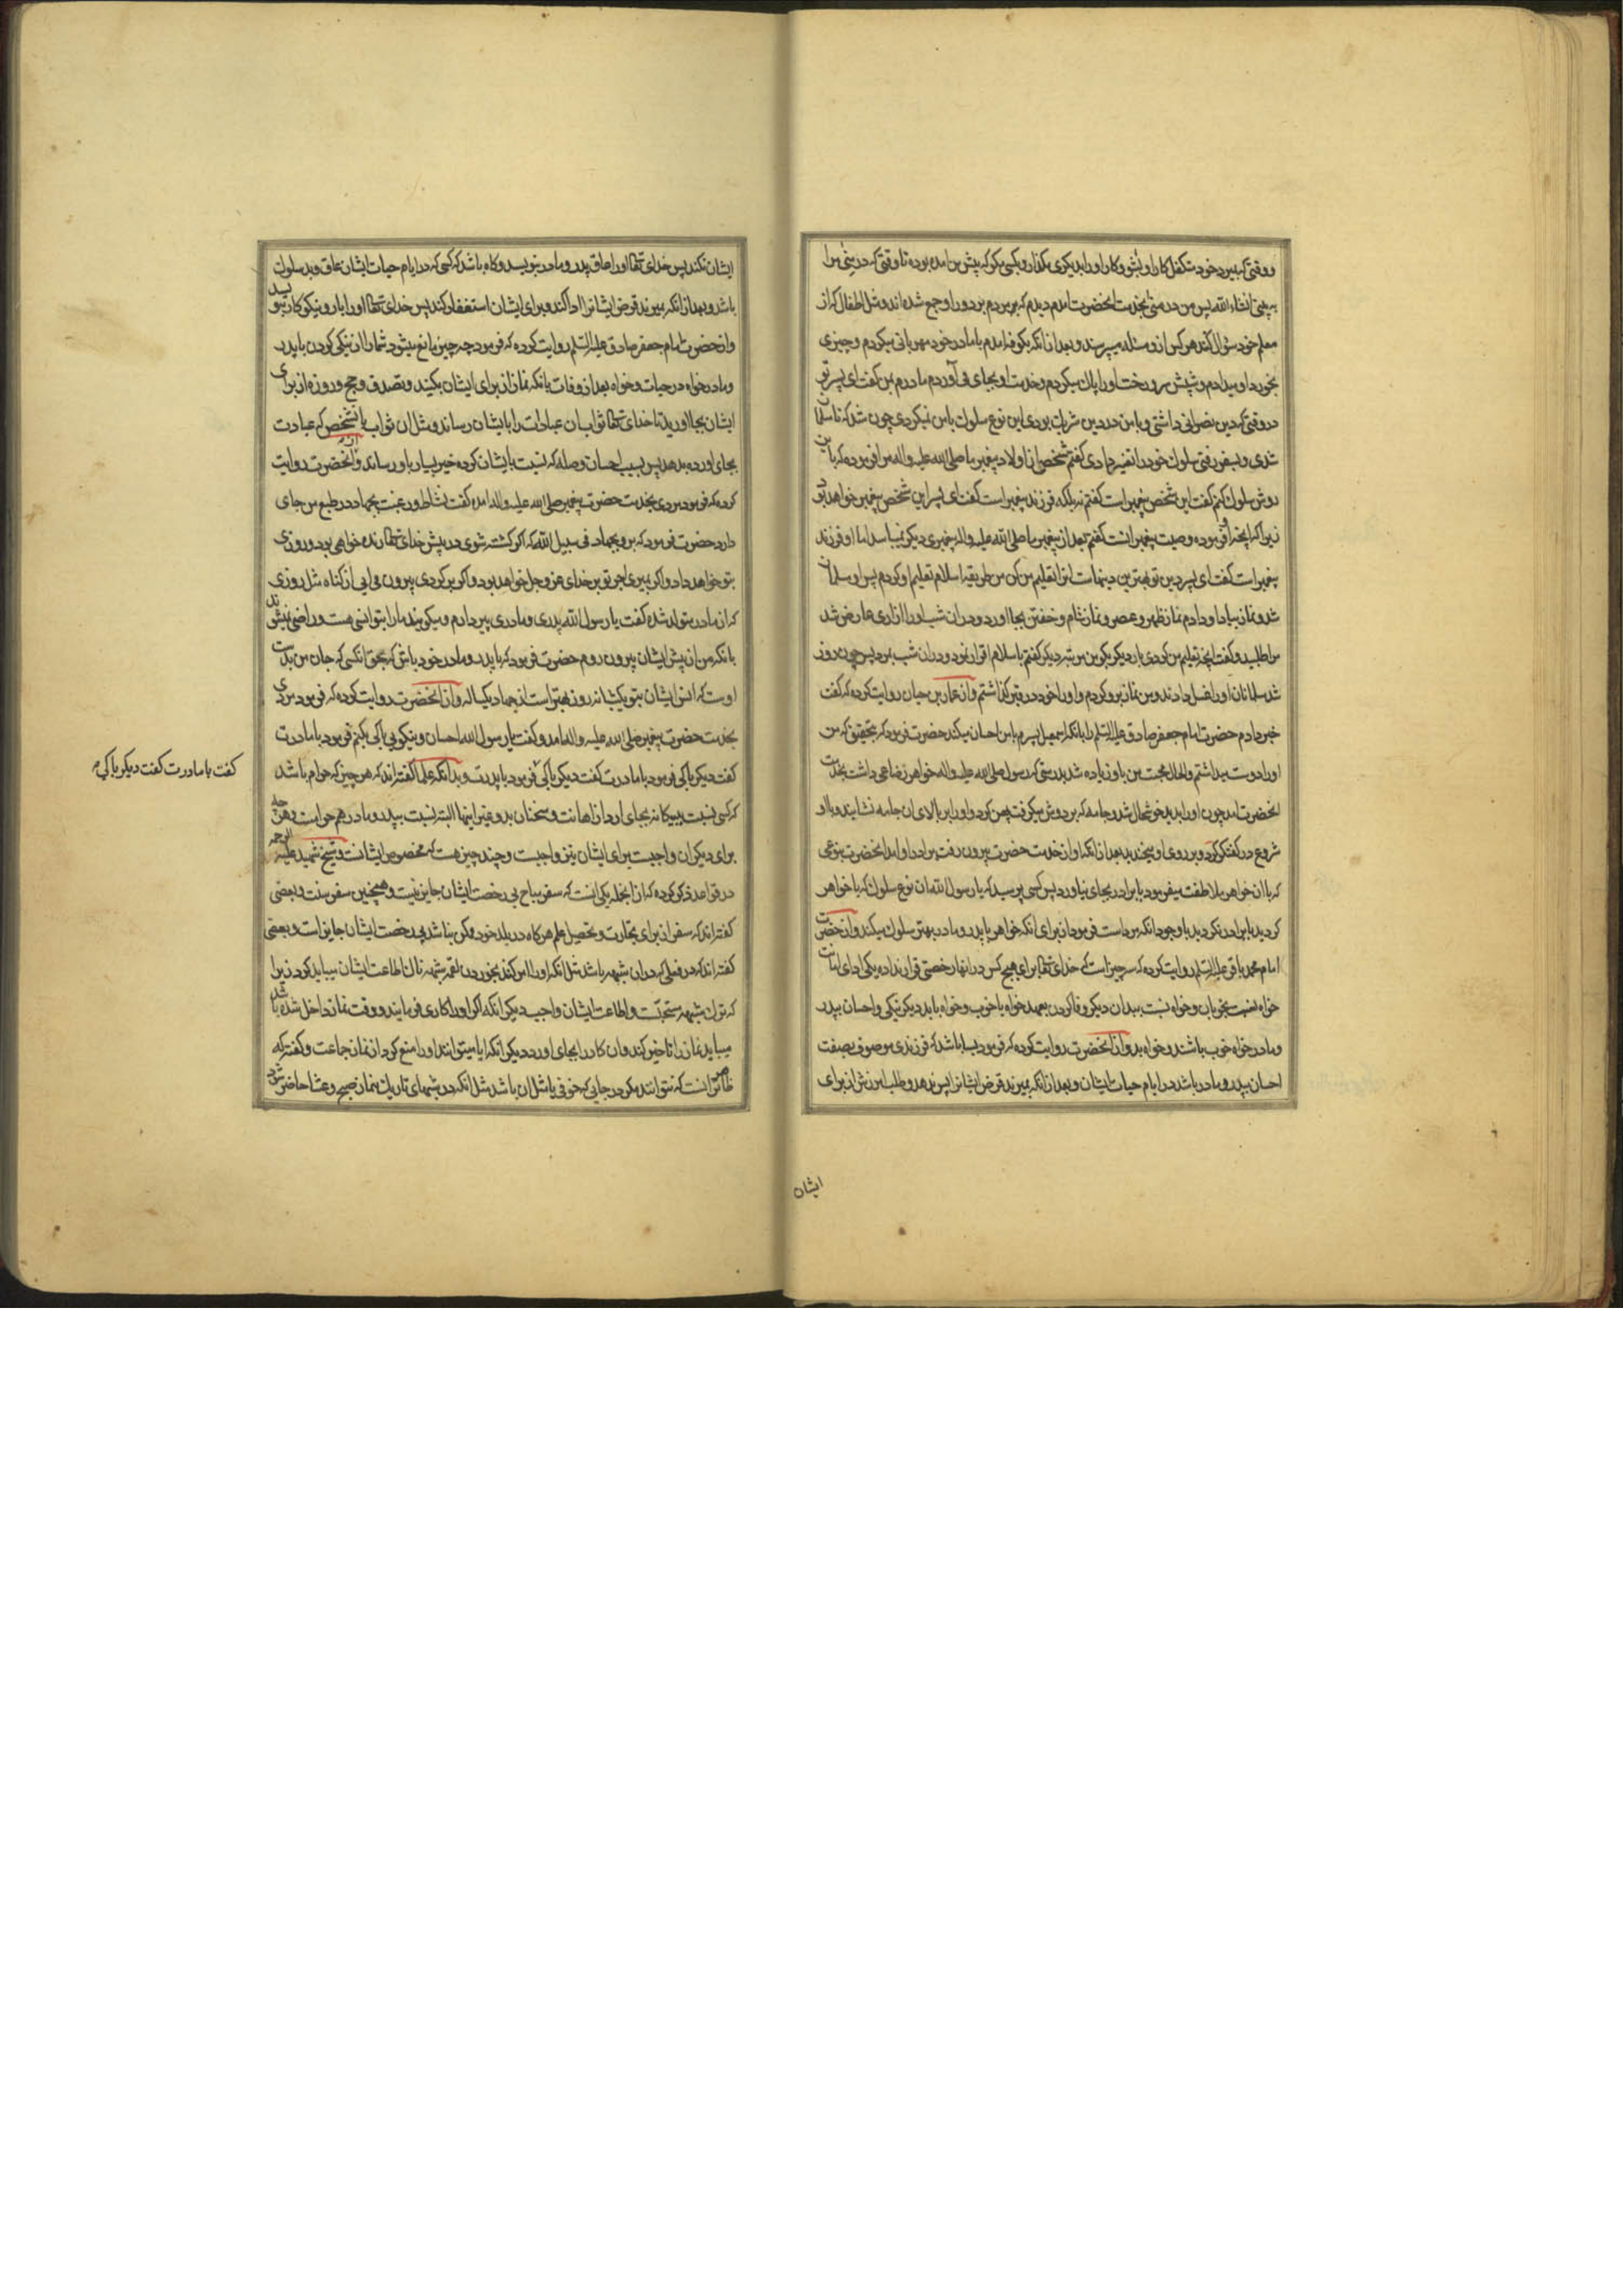 و وقتی که بمیرد خود متکفل کار او بشو و کار او را بدیگری مگذار و بکسی مگو که پیش من امده بوده تا وقتی که در منی مرا
ببینی انشاء الله پس من در منی بخدمت انحضرت امدم دیدم که مردم بر دور او جمع شده اند و مثل اطفال که از
معلم خود سؤال کنند هر کس از و مسئله میپرسند و بعد از انکه بکوفه امدم با مادر خود مهربانی میکردم و چیزی
بخورد او میدادم و شپش سر و رخت او را پاک میکردم و خدمت او بجای می آوردم مادرم بمن گفت ای پسر تو
در وقتی که دین نصرانی داشتی و با من در دین شریک بودی این نوع سلوک با من نمیکردی چون شد که تا مسلمان
شدی و بسفر رفتی سلوک خود را تغییر دادی گفتم شخصی از اولاد پیغمبر ما صلی الله علیه و اله مرا فرموده که با تو باین
روش سلوک کنم گفت این شخص پیغمبر است گفتم نه بلکه فرزند پیغمبر است گفت ای پسر این شخص پیغمبر خواهد بود
زیرا که انچه او فرموده وصیت پیغمبرانست گفتم بعد از پیغمبر ما صلی الله علیه و اله پیغمبری دیگر نمیباشد اما او فرزند
پیغمبر است گفت ای پسر دین تو بهترین دینهاست انرا تعلیم من کن من طریقه اسلام تعلیم او کردم پس او مسلمان
شد و نماز بیاد او دادم نماز ظهر و عصر و نماز شام و خفتن بجا اورد و در ان شب او را ازاری عارض شد
مرا طلبید و گفت انچه تعلیم من کردی بار دیگر بگو من مرتبه دیگر گفتم باسلام اقرار نمود و در ان شب بمرد پس چون روز
شد مسلمانان او را غسل دادند و من نماز برو کردم و او را خود در قبر گذاشتم و از عمار بن حیان روایت کرده که گفت
خبر دادم حضرت امام جعفر صادق علیه السلم را بانکه اسمعیل پسرم با من احسان میکند حضرت فرمود که بتحقیق که من
او را دوست میداشتم و الحال محبت من باو زیاده شد بدرستی که رسول صلی الله علیه و اله خواهر رضاعی داشت بخدمت
انحضرت امد چون او را بدید خوشحال شد و جامه که بر دوش میگرفت پهن کرد و او را بر بالای ان جامه نشانید و با او
شروع در گفتگو کرد و بر روی او میخندید بعد از انکه او از خدمت حضرت بیرون رفت برادر او امد انحضرت بنوعی
که با ان خواهر ملاطفت میفرمود با برادر بجای نیاورد پس کسی پرسید که یا رسول الله ان نوع سلوک که با خواهر
کردید با برادر نکردید با وجود انکه مرد است فرمود از برای انکه خواهر با پدر و مادر بهتر سلوک میکند و از حضرت
امام محمد باقر علیه السلم روایت کرده که سه چیز است که خدای تعالی برای هیچ کس در انها رخصتی قرار نداده یکی ادای امانت
خواه نسبت بخوبان و خواه نسبت ببدان دیگر وفا کردن بعهد خواه با خوب و خواه با بد دیگر نیکی و احسان بپدر
و مادر خواه خوب باشند و خواه بد و از انحضرت روایت کرده که فرمود بسا باشد که فرزندی موصوف بصفت
احسان بپدر و مادر باشد در ایام حیات ایشان و بعد از انکه بمیرند قرض ایشانرا پس ندهد و طلب امرزش از برای
ایشان
ایشان نکند پس خدای تعالی او را عاق پدر و مادر بنویسد و گاه باشد که کسی که در ایام حیات ایشان عاق و بد سلوک
باشد و بعد از انکه بمیرند قرض ایشانرا ادا کند و برای ایشان استغفار کند پس خدای تعالی او را بار و نیکوکار بنویسد
و از حضرت امام جعفر صادق علیه السلم روایت کرده که فرمود چه چیز مانع میشود شما را از نیکی کردن با پدر
و مادر خواه در حیات و خواه بعد از وفات بانکه نماز از برای ایشان بکنید و تصدق و حج و روزه از برای
ایشان بجا اورید تا خدای تعالی ثواب ان عبادات را بایشان رساند و مثل ان ثواب بانشخص که عبادت
بجای اورده بدهد پس بسبب احسان و صله که نسبت بایشان کرده خیر بسیار باو رساند و از انحضرت روایت
کرده که فرمود مردی بخدمت حضرت پیغمبر صلی الله علیه و اله امده گفت نشاط و رغبت بجهاد در طبع من جای
دارد حضرت فرمود که برو بجهاد فی سبیل الله که اگر کشته شوی در پیش خدای تعالی زنده خواهی بود و روزی
بتو خواهد داد و اگر بمیری اجر تو بر خدای عز و جل خواهد بود و اگر برگردی بیرون می ایی از گناه مثل روزی
که از مادر متولد شده گفت یا رسول الله پدری و مادری پیر دارم و میگویند ما را بتو انسی هست و راضی نمیشوند
بانکه من از پیش ایشان بیرون روم حضرت فرمود که با پدر و مادر خود باش که بحق انکسی که جان من بدست
اوست که انس ایشان بتو یکشبانه روز بهتر است از جهاد یکساله و از انحضرت روایت کرده که فرمود مردی
بخدمت حضرت پیغمبر صلی الله علیه و اله امد و گفت یا رسول الله احسان و نیکویی با کی بکنم فرمود با مادرت
گفت دیگر با کی فرمود با مادرت گفت دیگر با کی فرمود با پدرت و بدانکه علما گفته اند که هر چیز که حرام باشد
که کسی نسبت ببیگانه بجای ارد از اهانت و سخنان بد و غیر اینها البته نسبت بپدر و مادر هم حرامست و هر چه
برای دیگران واجبست برای ایشان نیز واجبست و چند چیز هست که مخصوص ایشانست و شیخ شهید علیه الرحمه
در قواعد ذکر کرده که از انجمله یکی انست که سفر مباح بی رخصت ایشان جایز نیست و همچنین سفر سنت و بعضی
گفته اند که سفر از برای تجارت و تحصیل علم هر گاه در بلد خود ممکن نباشد بی رخصت ایشان جایز است و بعضی
گفته اند که در فعلی که در ان شبهه باشد مثل انکه او را امر کند بخوردن لقمه شبهه ناک اطاعت ایشان میباید کرد زیرا
که ترک شبهه مستحبّ است و اطاعت ایشان واجب دیگر انکه اگر او را کاری فرمایند و وقت نماز داخل شده باشد
میباید نماز را تاخیر کند و ان کار را بجای اورد و دیگر انکه ایا میتوانند او را منع کرد از نماز جماعت و گفته که
ظاهر انست که نتوانند مگر در جایی که خوفی یا مثل ان باشد مثل انکه در شبهای تاریک بنماز صبح و عشا حاضر شود
گفت با مادرت گفت دیگر با کی